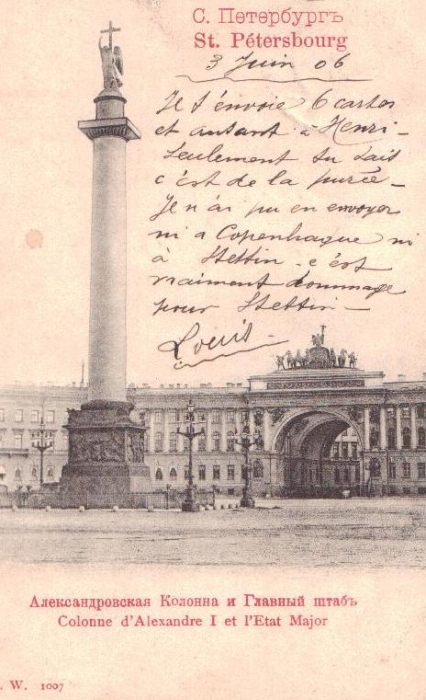 С. Петербургъ
St. Pétersbourg
3 Juin 06
Je t'envoie 6 cartes
et autant à Henri -
Seulement tu sais
c'est de la purée -
Je n'ai pu en envoyer
ni a Copenhague ni
à Stettin - c'est
vraiment dommage
pour Stettin -
Louis
Александровская Колонна и Главный штабъ
Colonne d'Alexandre I et l'Etat Major
. W. 1007